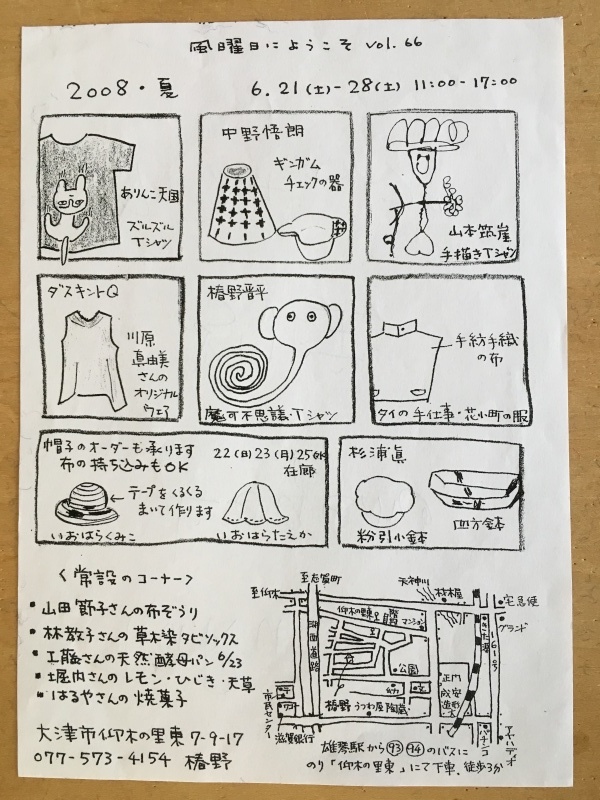 風曜日にようこそ vol.66
2008・夏
6.21(土)-28(土) 11:00-17:00
ありんこ天国
ズルズル
Tシャツ
中野悟朗
ギンガム
チェックの器
山本筑崖
手描きTシャツ
ダスキントQ
川原
真由美
さんの
オリジナル
ウェア
椿野晋平
魔可不思議・Tシャツ
手紡手織
の布
タイの手仕事・花小町の服
帽子のオーダーも承ります
布の持ち込みもOK
22(日)23(月)25(水)
在廊
←テープをくるくる
まいて作ります
いおはらくみこ
いおはらたえか
杉浦眞
粉引小鉢
四方鉢
<常設のコーナー>
・山田節子さんの布ぞうり
・林敦子さんの草木染タビソックス
・工藤さんの天然酵母パン 6/23
・堀内さんのレモン・ひじき・天草
・はるやさんの焼菓子
大津市仰木の里東7-9-17
077-573-4154 椿野
至志賀町
至仰木
天神川
材木屋
宅急便
グランド
仰木の里東
マンション
湖西道路
公園
161号
正門
成安
造形大
幼
椿野 うつわ屋 陶蔵
市民センター
滋賀銀行
パチンコ
アヤハディオ
雄琴駅から93 94のバスに
のり「仰木の里東」にて下車.徒歩3分